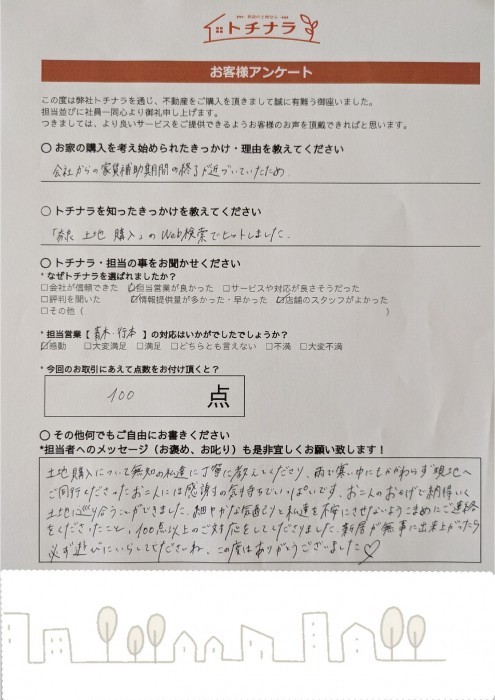 奈良の土地なら
トチナラ
お客様アンケート
この度は弊社トチナラを通じ、不動産をご購入を頂きまして誠に有難う御座いました。
担当並びに社員一同心より御礼申し上げます。
つきましては、より良いサービスをご提供できるようお客様のお声を頂戴できればと思います。
〇 お家の購入を考え始められたきっかけ・理由を教えてください
会社からの家賃補助期間の終了が近づいていたため
〇 トチナラを知ったきっかけを教えてください
「奈良 土地 購入」のWeb検索でヒットしました。
〇 トチナラ・担当の事をお聞かせください
* なぜトチナラを選ばれましたか？
□会社が信頼できた ☑担当営業が良かった □サービスや対応が良さそうだった
□評判を聞いた ☑情報提供量が多かった・早かった ☑店舗のスタッフがよかった
□その他（ ）
* 担当営業【 青木・行本 】の対応はいかがでしたでしょうか？
☑感動 □大変満足 □満足 □どちらとも言えない □不満 □大変不満
* 今回のお取引にあえて点数をお付け頂くと？
100 点
〇 その他何でもご自由にお書きください
*担当者へのメッセージ（お褒め、お叱り）も是非宜しくお願い致します！
土地購入について無知の私達に丁寧に教えてくださり、雨で寒い中にもかかわらず現地へ
ご同行くださったお二人には感謝の気持ちでいっぱいです。お二人のおかげで納得いく
土地に巡り合うことができました。細やかな気配りと私達を不安にさせないようこまめにご連絡
をくださったこと、100点以上のご対応をしてくださりました。新居が無事に出来上がったら
必ず遊びにいらしてくださいね。この度はありがとうございました♡